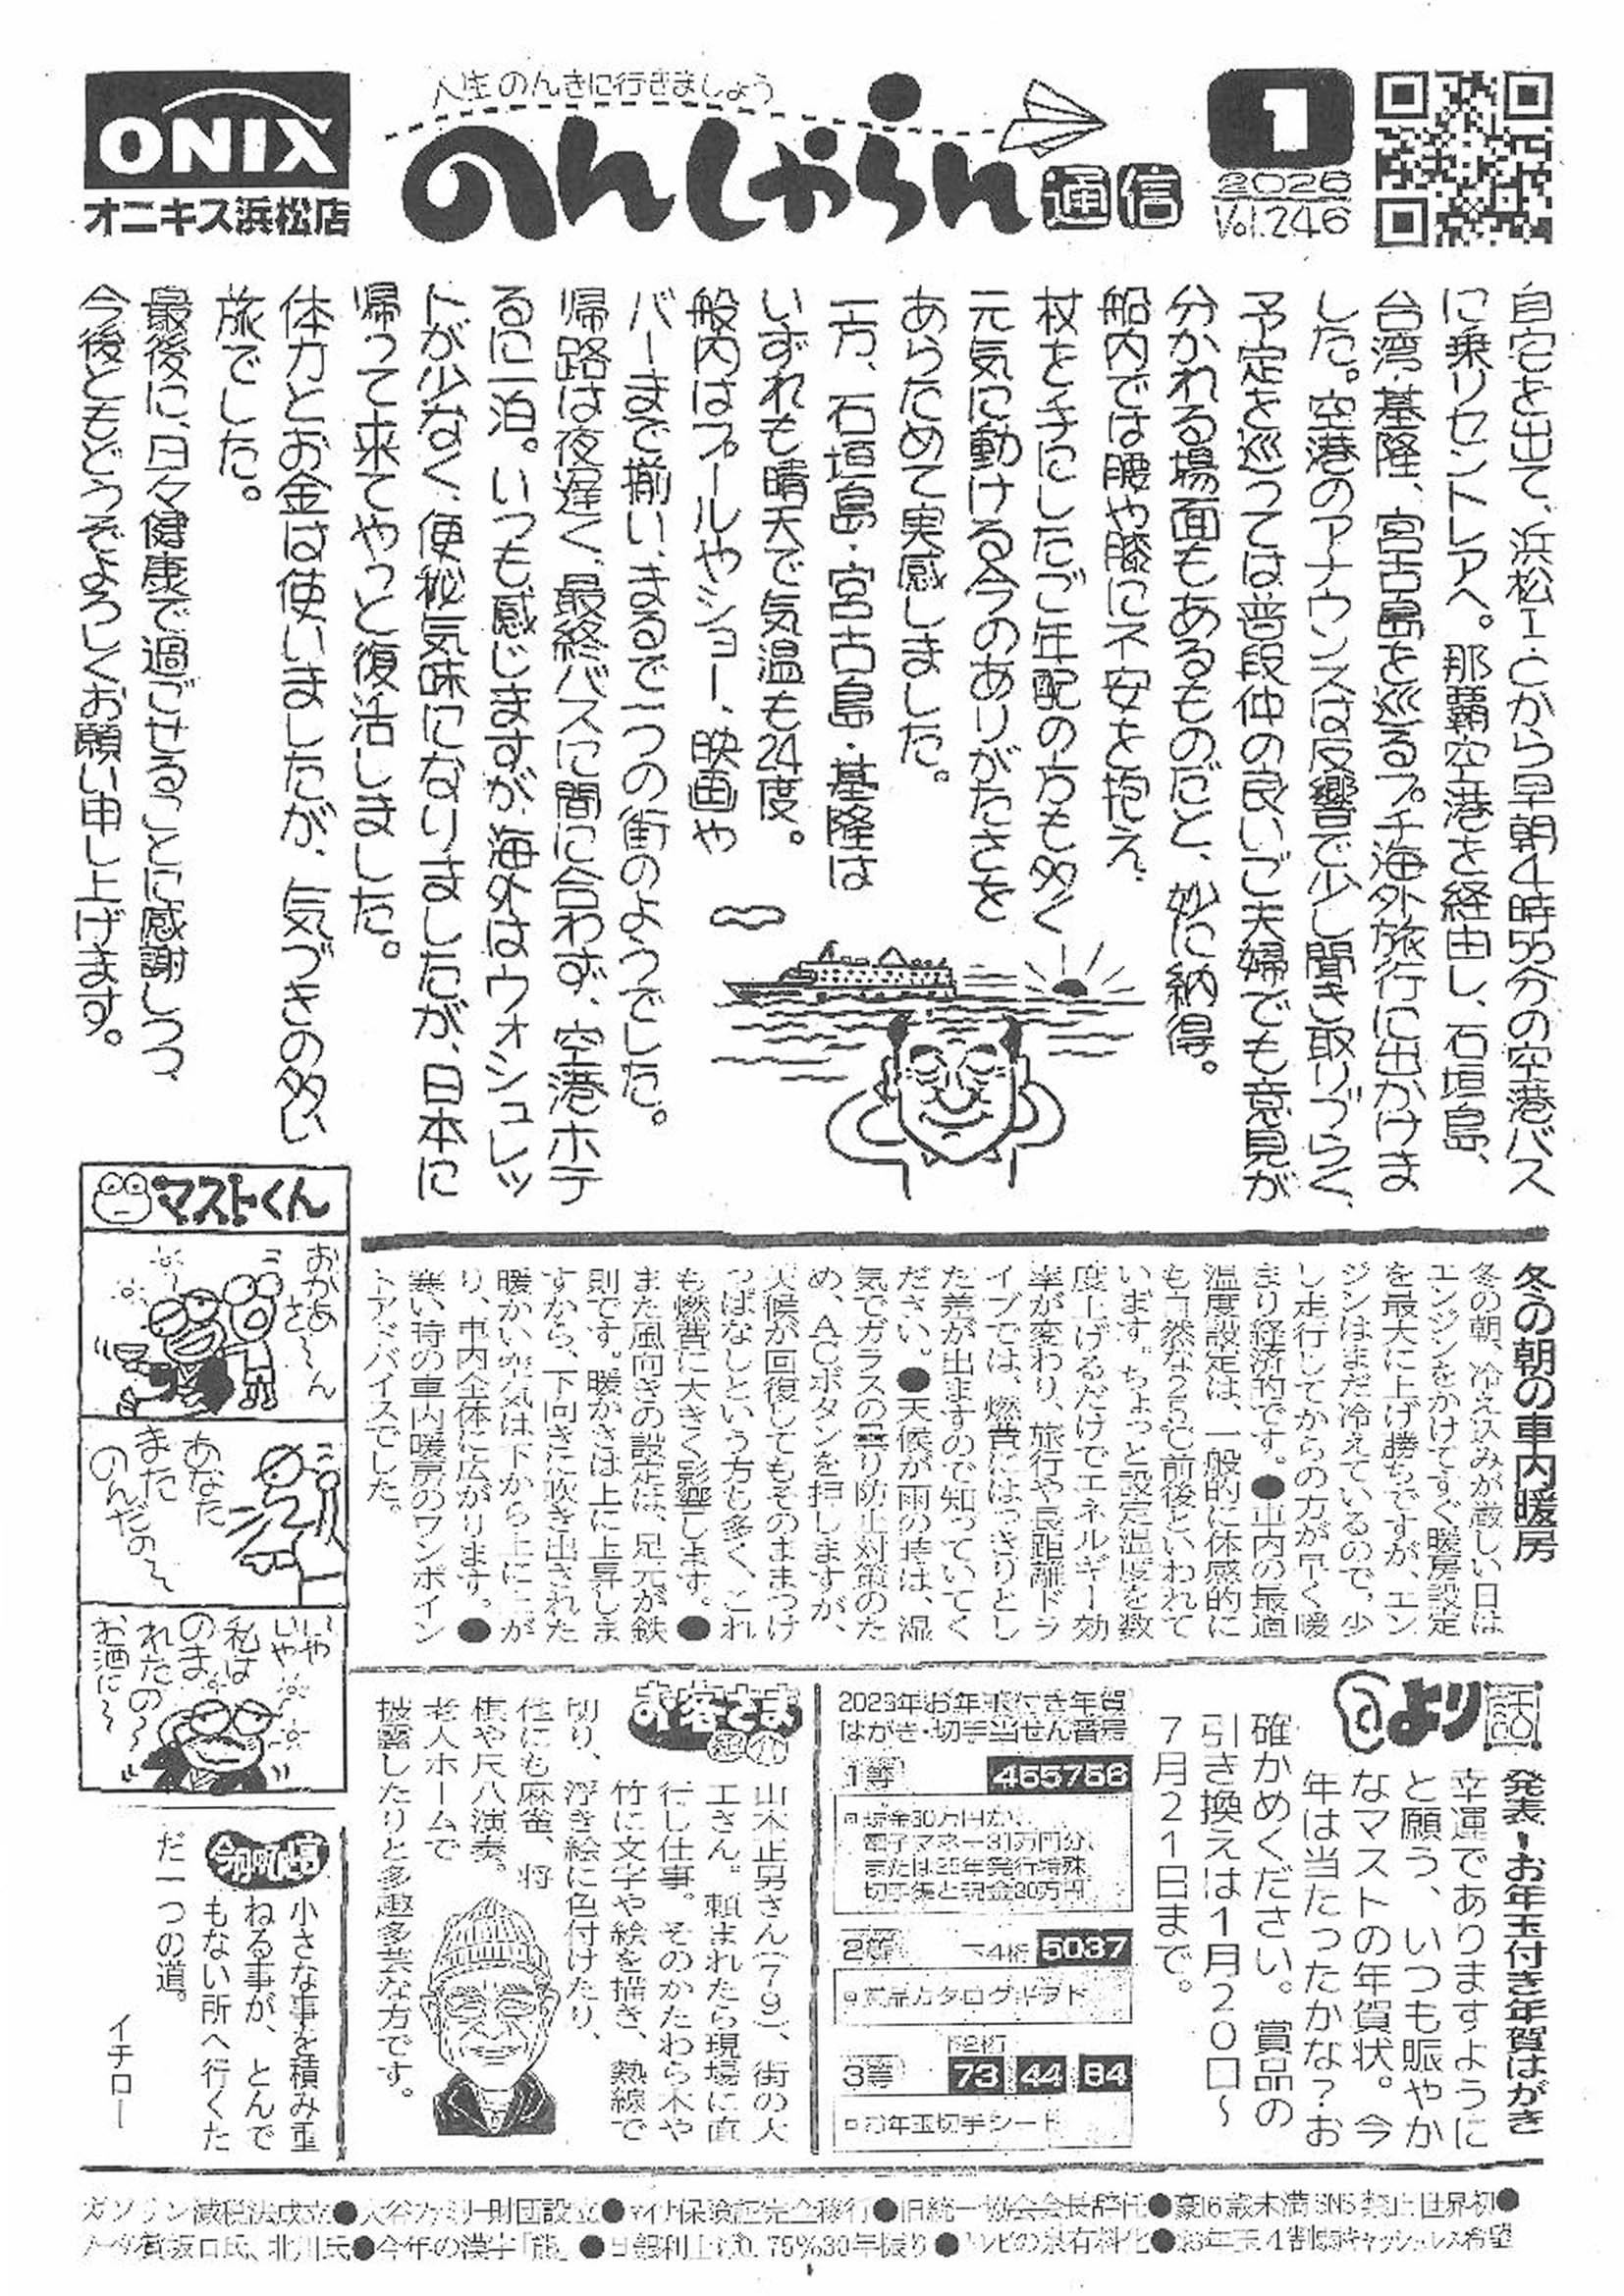 ONIX
オニキス浜松店
人生のんきに行きましょう
のんしゃらん通信
1
2026
Vol.246
自宅を出て、浜松I・Cから早朝4時50分の空港バス
に乗りセントレアへ。那覇空港を経由し、石垣島、
台湾・基隆、宮古島を巡るプチ海外旅行に出かけま
した。空港のアナウンスは反響で少し聞き取りづらく、
予定を巡っては普段仲の良いご夫婦でも意見が
分かれる場面もあるものだと、妙に納得。
船内では腰や膝に不安を抱え、
杖を手にしたご年配の方も多く
元気に動ける今のありがたさを
あらためて実感しました。
一方、石垣島・宮古島・基隆は
いずれも晴天で気温も24度。
船内はプールやショー、映画や
バーまで揃い、まるで一つの街のようでした。
帰路は夜遅く、最終バスに間に合わず、空港ホテ
るに一泊。いつも感じますが、海外はウォシュレッ
トが少なく、便秘気味になりましたが、日本に
帰って来てやっと復活しました。
体力とお金は使いましたが、気づきの多い
旅でした。
最後に、日々健康で過ごせることに感謝しつつ、
今後ともどうぞよろしくお願い申し上げます。
マストくん
おかあ〜
さ〜ん
あなた
また
のんだの〜
いや
いや
私は
のま
れたの〜
お酒に〜
冬の朝の車内暖房
冬の朝、冷え込みが厳しい日は
エンジンをかけてすぐ暖房設定
を最大に上げ勝ちですが、エン
ジンはまだ冷えているので、少
し走行してからの方が早く暖
まり経済的です。●車内の最適
温度設定は、一般的に体感的に
も自然な25℃前後といわれて
います。ちょっと設定温度を数
度上げるだけでエネルギー効
率が変わり、旅行や長距離ドラ
イブでは、燃費にはっきりとし
た差が出ますので知っていてく
ださい。●天候が雨の時は、湿
気でガラスの曇り防止対策のた
め、ACボタンを押しますが、
天候が回復してもそのままつけ
っぱなしという方も多く、これ
も燃費に大きく影響します。●
また風向きの設定は、足元が鉄
則です。暖かさは上に上昇しま
すから、下向きに吹き出された
暖かい空気は下から上に上が
り、車内全体に広がります。●
寒い時の車内暖房のワンポイン
トアドバイスでした。
より
発表!お年玉付き年賀はがき
幸運でありますように
と願う、いつも賑やか
なマストの年賀状。今
年は当たったかな?お
確かめください。賞品の
引き換えは1月20日〜
7月21日まで。
2026年お年玉付き年賀
はがき・切手当せん番号
1等 455758
現金30万円か、
電子マネー31万円分、
または26年発行特殊
切手集と現金20万円
2等 下4桁 5037
賞品カタログギフト
3等 下2桁 73 44 84
お年玉切手シート
お客さま
山本正男さん(79)、街の大
工さん。頼まれたら現場に直
行し仕事。そのかたわら木や
竹に文字や絵を描き、熱線で
切り、浮き絵に色付けたり、
他にも麻雀、将
棋や尺八演奏。
老人ホームで
披露したりと多趣多芸な方です。
小さな事を積み重
ねる事が、とんで
もない所へ行くた
だ一つの道。
イチロー
ガソリン減税法成立●大谷ファミリー財団設立●マイナ保険証完全移行●旧統一協会会長辞任●豪16歳未満SNS禁止世界初●
ノーベル賞坂口氏、北川氏●今年の漢字「熊」●日銀利上げ0.75%30年振り●トイレの水有料化●お年玉4割キャッシュレス希望